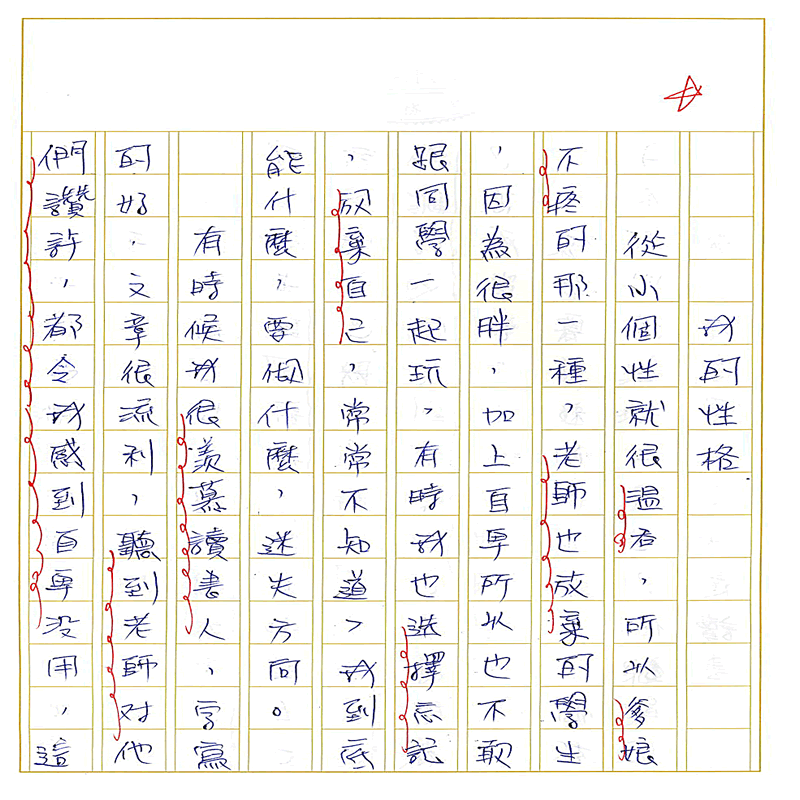 我的性格
從小個性就很溫吞，所以爹娘
不疼的那一種，老師也放棄的學生
，因為很胖，加上自卑所以也不敢
跟同學一起玩，有時我也選擇忘記
，放棄自己，常常不知道，我到底
能什麼，要做什麼，迷失方向。
有時候我很羨慕讀書人，字寫
的好，文章很流利，聽到老師对他
們讚許，都令我感到自卑没用，這